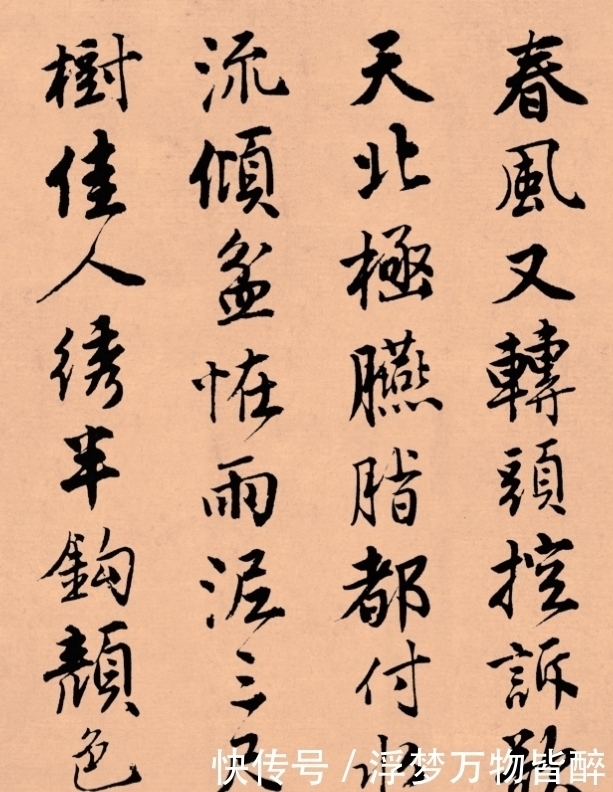 春風又轉頭控訴
天北極臙脂都付水
流傾盆恠雨泥三尺
樹佳人綉半鈎顔色
快传号 / 浮梦万物皆醉